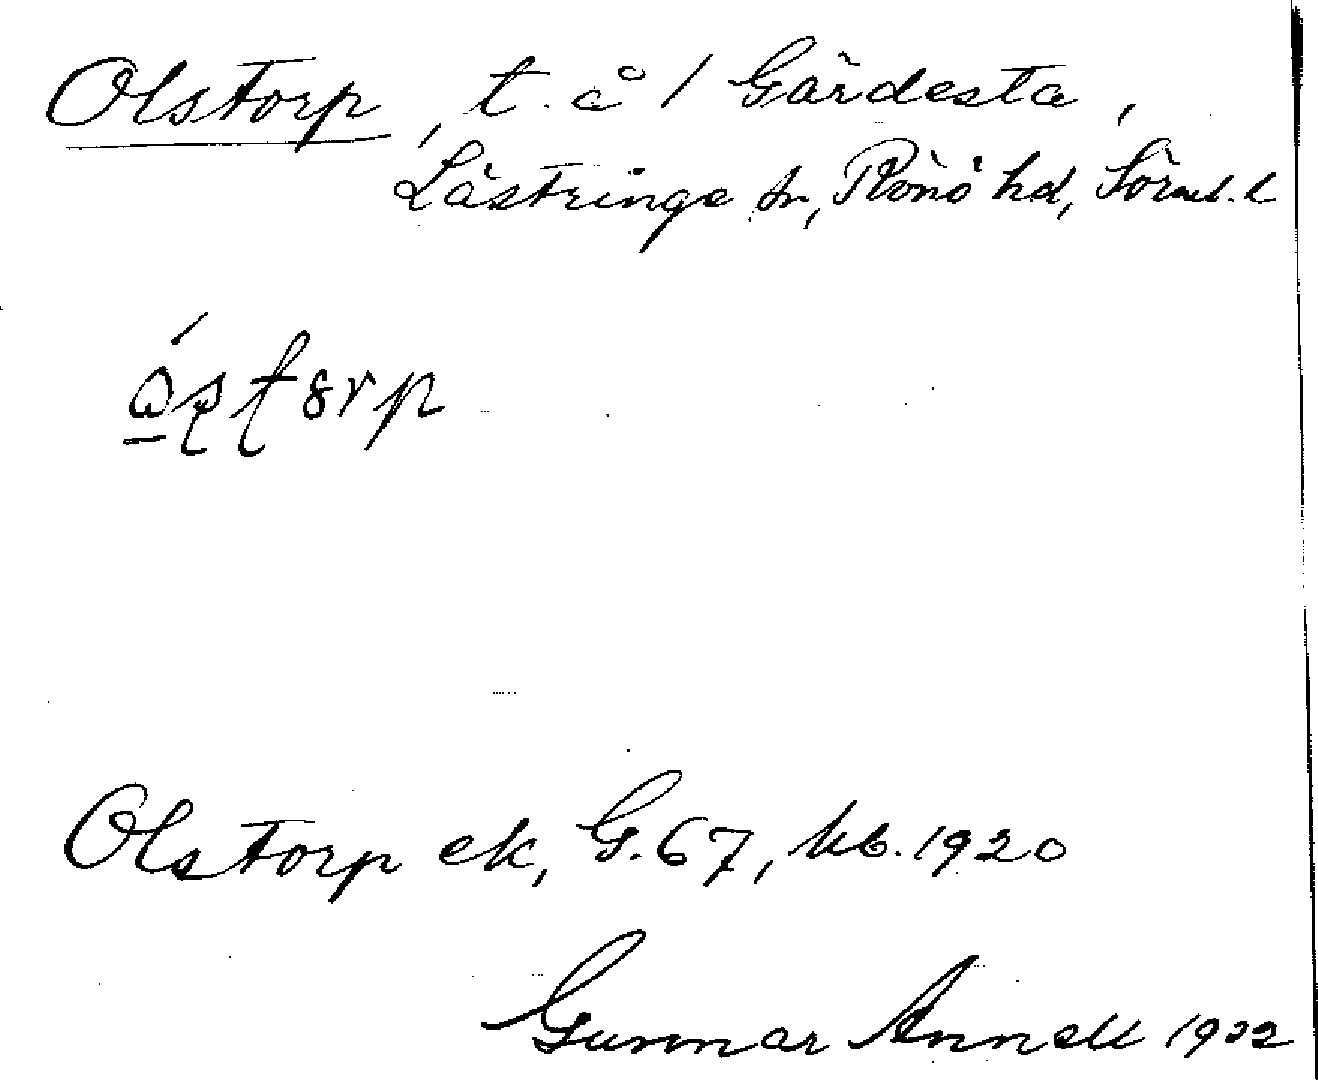 Olstorp, t. å 1 Gärdesta,
Lästringe sn, Rönö hd, Sörml. l
Olstorp ek, G. 67, kb. 1920
Gunnar Annell 1922